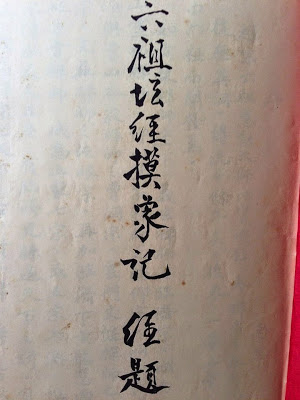 六祖坛经摸象记 经题